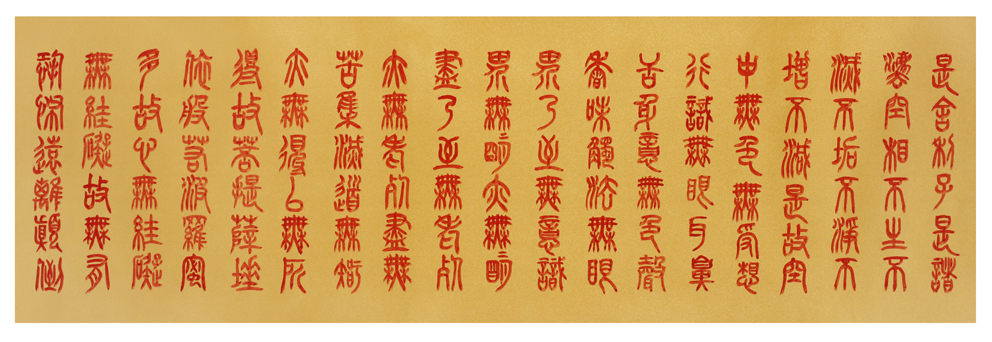 是舍利子是諸
灋空相不生不
滅不垢不淨不
增不減是故空
中無色無受想
行識無眼耳鼻
舌身意無色聲
香味觸法無眼
界乃至無意識
界無〻明亦無明
盡乃至無老死
亦無老死盡無
苦集滅道無智
亦無得以無所
得故菩提薩埵
依般若波羅蜜
多故心無絓礙
無絓礙故無有
恐怖遠離顛倒